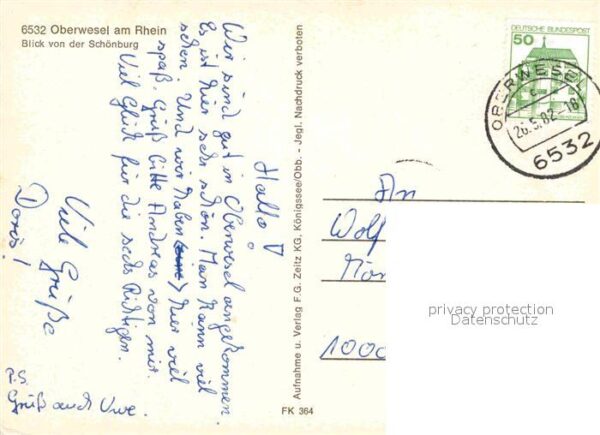 6532 Oberwesel am Rhein
Blick von der Schönburg
Hallo!
Wir sind gut in Oberwesel angekommen.
Es ist hier sehr schön. Man kann viel
sehen. Und wir haben hier viel
spaß. Grüß bitte Andreas von mir.
Viel Glück für die sechs Richtigen.
Viele Grüße
Doris!
P.S.
Grüß auch Uwe.
Aufnahme u. Verlag F.G. Zeitz KG, Königssee/Obb. - Jegl. Nachdruck verboten
FK 364
DEUTSCHE BUNDESPOST
50
OBERWESEL
26.5.82-18
6532
An
Wolf
1000
privacy protection
Datenschutz